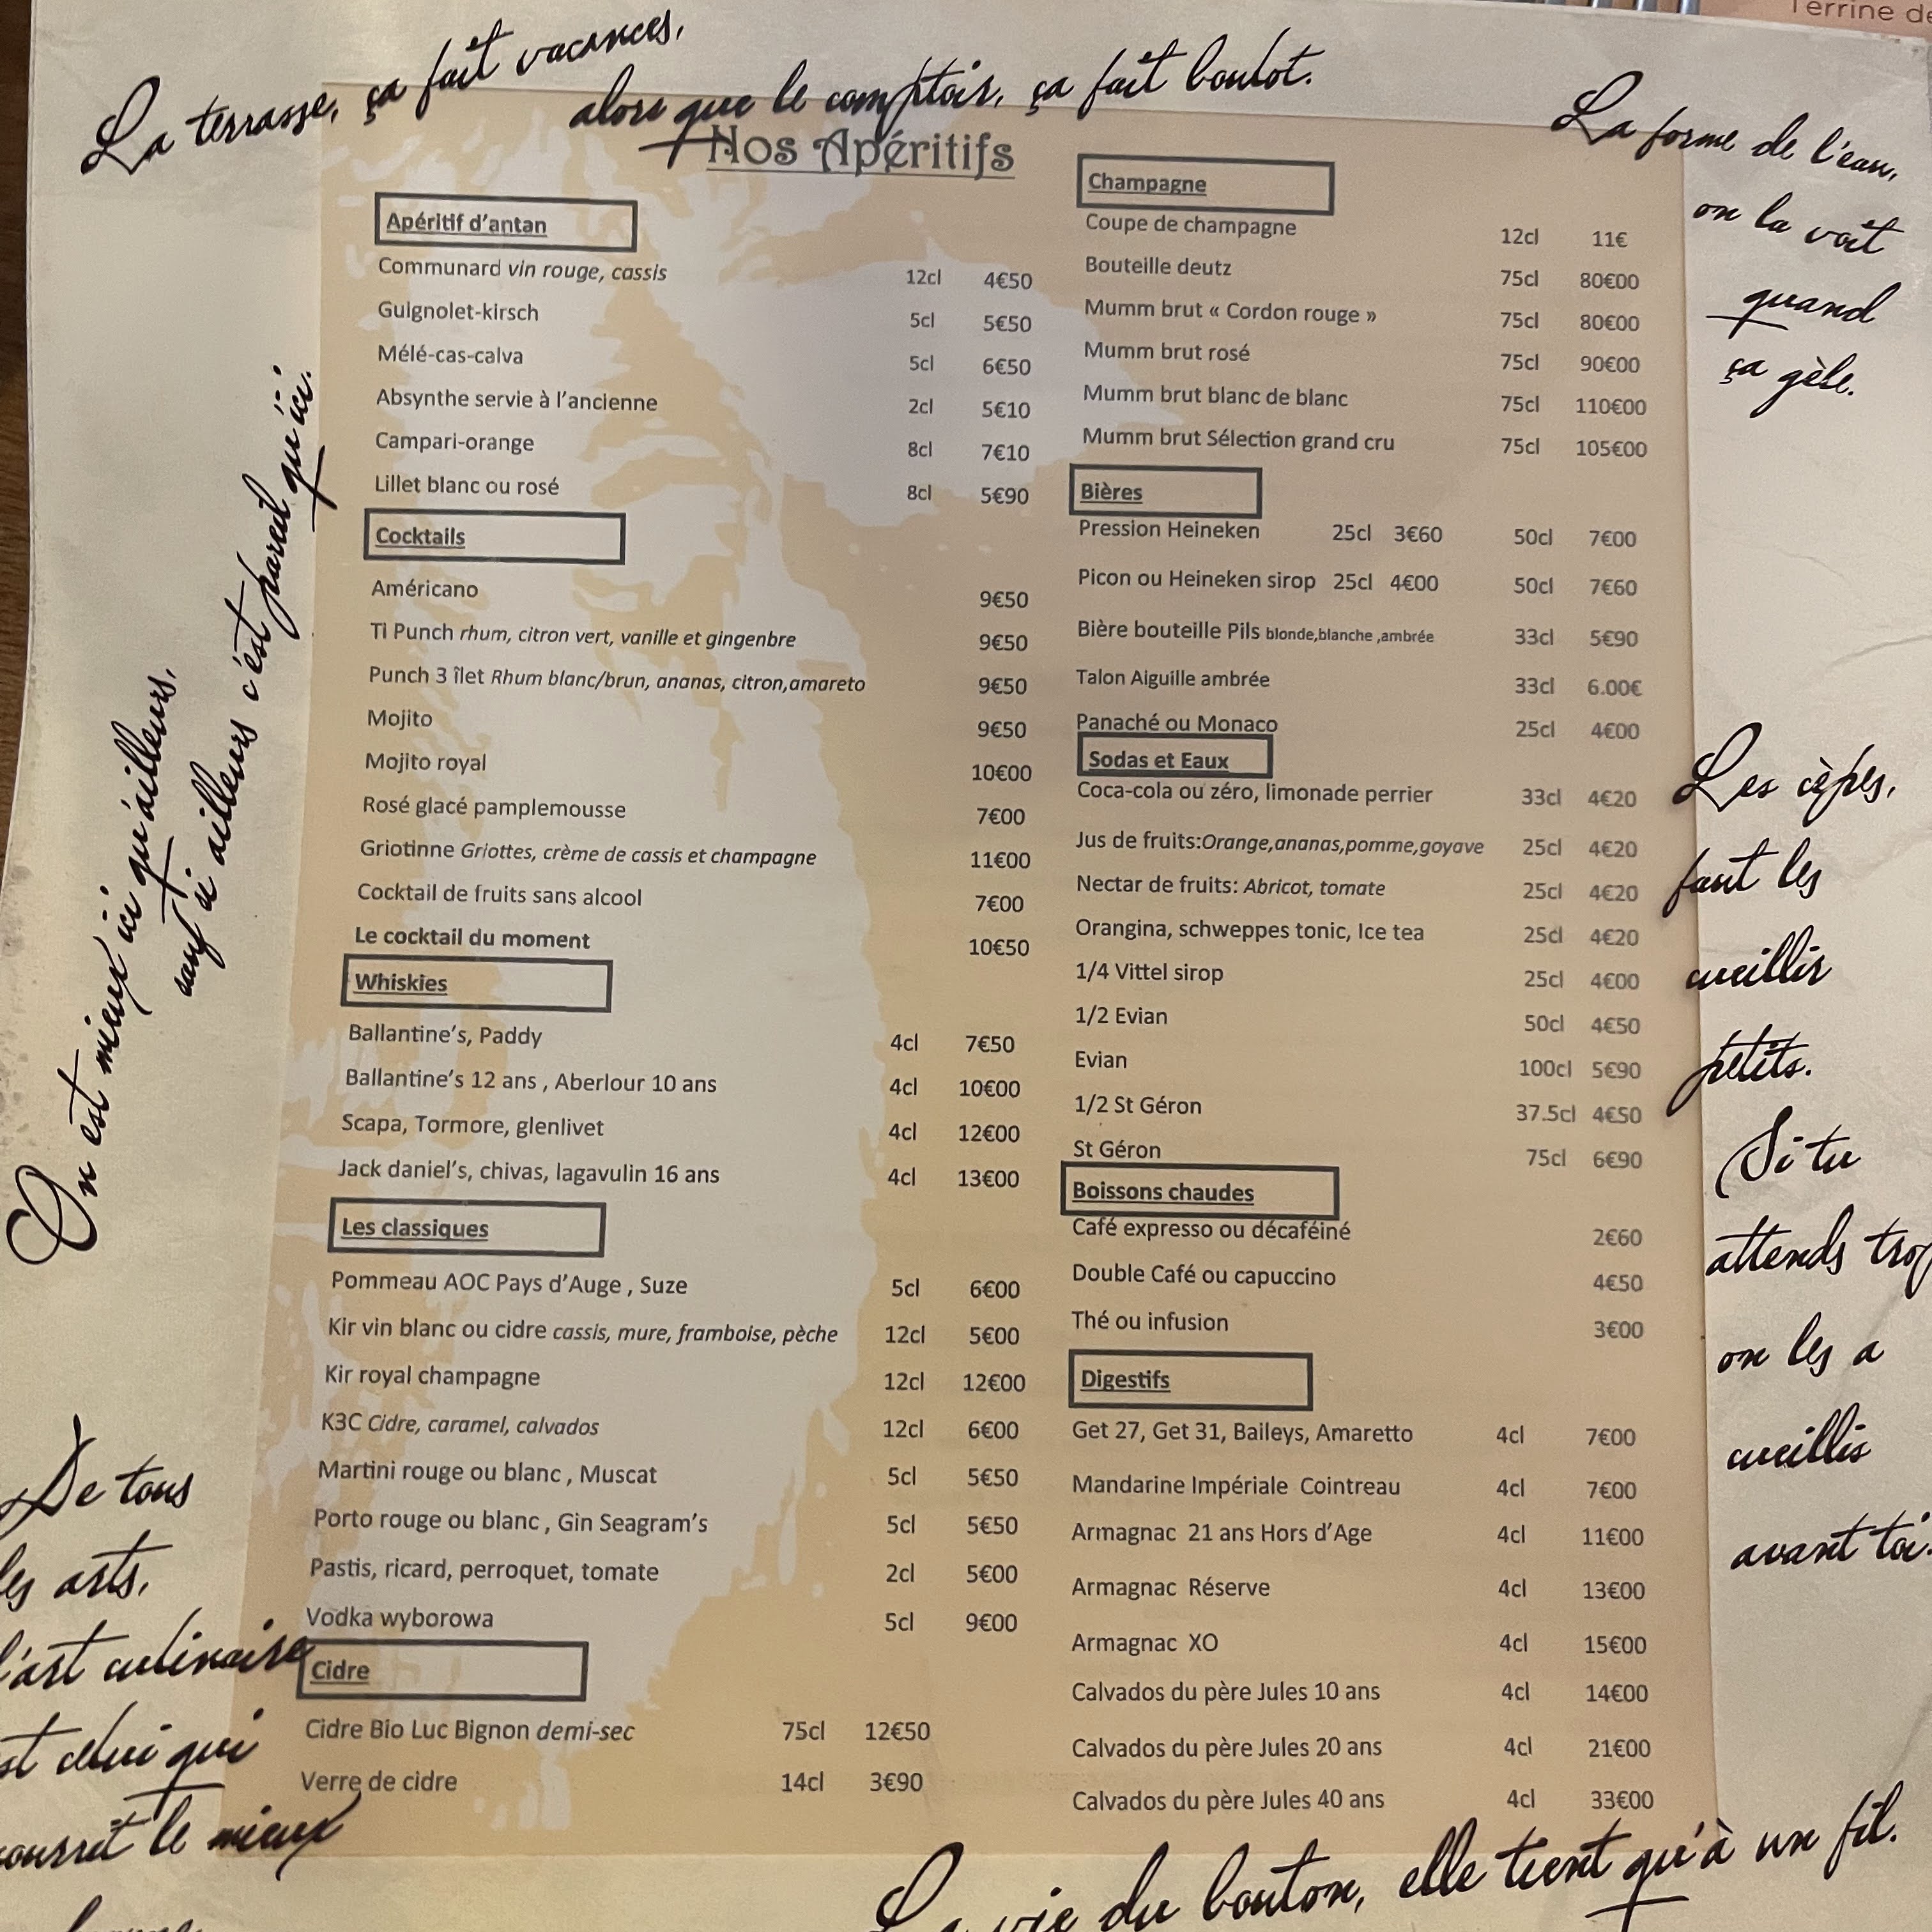 Terrine de
La terrasse, ça fait vacances,
alors que le comptoir, ça fait boulot.
La forme de l'eau,
on la voit
quand
ça gèle.
Nos Apéritifs
Apéritif d'antan
Communard vin rouge, cassis 12cl 4€50
Guignolet-kirsch 5cl 5€50
Mélé-cas-calva 5cl 6€50
Absynthe servie à l'ancienne 2cl 5€10
Campari-orange 8cl 7€10
Lillet blanc ou rosé 8cl 5€90
Cocktails
Américano 9€50
Ti Punch rhum, citron vert, vanille et gingenbre 9€50
Punch 3 îlet Rhum blanc/brun, ananas, citron,amareto 9€50
Mojito 9€50
Mojito royal 10€00
Rosé glacé pamplemousse 7€00
Griotinne Griottes, crème de cassis et champagne 11€00
Cocktail de fruits sans alcool 7€00
Le cocktail du moment 10€50
Whiskies
Ballantine's, Paddy 4cl 7€50
Ballantine's 12 ans , Aberlour 10 ans 4cl 10€00
Scapa, Tormore, glenlivet 4cl 12€00
Jack daniel's, chivas, lagavulin 16 ans 4cl 13€00
Les classiques
Pommeau AOC Pays d'Auge , Suze 5cl 6€00
Kir vin blanc ou cidre cassis, mure, framboise, pèche 12cl 5€00
Kir royal champagne 12cl 12€00
K3C Cidre, caramel, calvados 12cl 6€00
Martini rouge ou blanc , Muscat 5cl 5€50
Porto rouge ou blanc , Gin Seagram's 5cl 5€50
Pastis, ricard, perroquet, tomate 2cl 5€00
Vodka wyborowa 5cl 9€00
Cidre
Cidre Bio Luc Bignon demi-sec 75cl 12€50
Verre de cidre 14cl 3€90
Champagne
Coupe de champagne 12cl 11€
Bouteille deutz 75cl 80€00
Mumm brut « Cordon rouge » 75cl 80€00
Mumm brut rosé 75cl 90€00
Mumm brut blanc de blanc 75cl 110€00
Mumm brut Sélection grand cru 75cl 105€00
Bières
Pression Heineken 25cl 3€60 50cl 7€00
Picon ou Heineken sirop 25cl 4€00 50cl 7€60
Bière bouteille Pils blonde,blanche ,ambrée 33cl 5€90
Talon Aiguille ambrée 33cl 6.00€
Panaché ou Monaco 25cl 4€00
Sodas et Eaux
Coca-cola ou zéro, limonade perrier 33cl 4€20
Jus de fruits:Orange,ananas,pomme,goyave 25cl 4€20
Nectar de fruits: Abricot, tomate 25cl 4€20
Orangina, schweppes tonic, Ice tea 25cl 4€20
1/4 Vittel sirop 25cl 4€00
1/2 Evian 50cl 4€50
Evian 100cl 5€90
1/2 St Géron 37.5cl 4€50
St Géron 75cl 6€90
Boissons chaudes
Café expresso ou décaféiné 2€60
Double Café ou capuccino 4€50
Thé ou infusion 3€00
Digestifs
Get 27, Get 31, Baileys, Amaretto 4cl 7€00
Mandarine Impériale Cointreau 4cl 7€00
Armagnac 21 ans Hors d'Age 4cl 11€00
Armagnac Réserve 4cl 13€00
Armagnac XO 4cl 15€00
Calvados du père Jules 10 ans 4cl 14€00
Calvados du père Jules 20 ans 4cl 21€00
Calvados du père Jules 40 ans 4cl 33€00
On est mieux ici qu'ailleurs,
sauf si ailleurs c'est pareil qu'ici.
Les cèpes,
faut les
cueillir
petits.
Si tu
attends trop
on les a
cueillis
avant toi.
De tous
les arts,
l'art culinaire
est celui qui
nourrit le mieux
La vie du bouton, elle tient qu'à un fil.